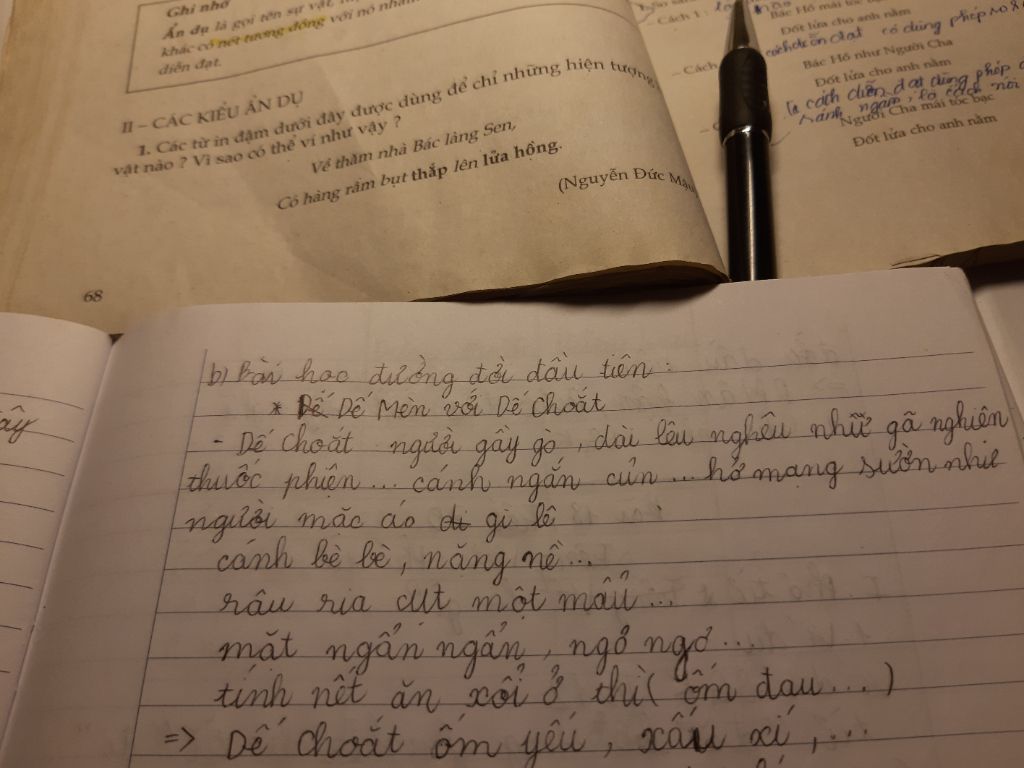 Ghi nhớ
Ẩn dụ là gọi tên sự vật,
khác có nét tương đồng với nó
diễn đạt.
II – CÁC KIỂU ẨN DỤ
1. Các từ in đậm dưới đây được dùng để chỉ những hiện tượng,
vật nào ? Vì sao có thể ví như vậy ?
Về thăm nhà Bác làng Sen,
Có hàng râm bụt thắp lên lửa hồng.
(Nguyễn Đức
68
Cách 1 :
Bác Hồ mái tóc
Đốt lửa cho anh nằm
có dùng phép so
– Cách
Bác Hồ như Người Cha
Đốt lửa cho anh nằm
là cách diễn đạt dùng phép
Người Cha mái tóc bạc
Đốt lửa cho anh nằm
b) Bài học đường đời đầu tiên :
* Dế Mèn với Dế Choắt
- Dế Choắt người gầy gò, dài lêu nghêu như gã nghiên
thuốc phiện ... cánh ngắn củn ... hở mạng sườn như
người mặc áo gi lê
cánh bè bè, nặng nề ...
râu ria cụt một mẩu ...
mặt ngẩn ngẩn, ngơ ngơ ...
tính nết ăn xổi ở thì ( ốm đau ... )
=> Dế Choắt ốm yếu, xấu xí, ...
ây